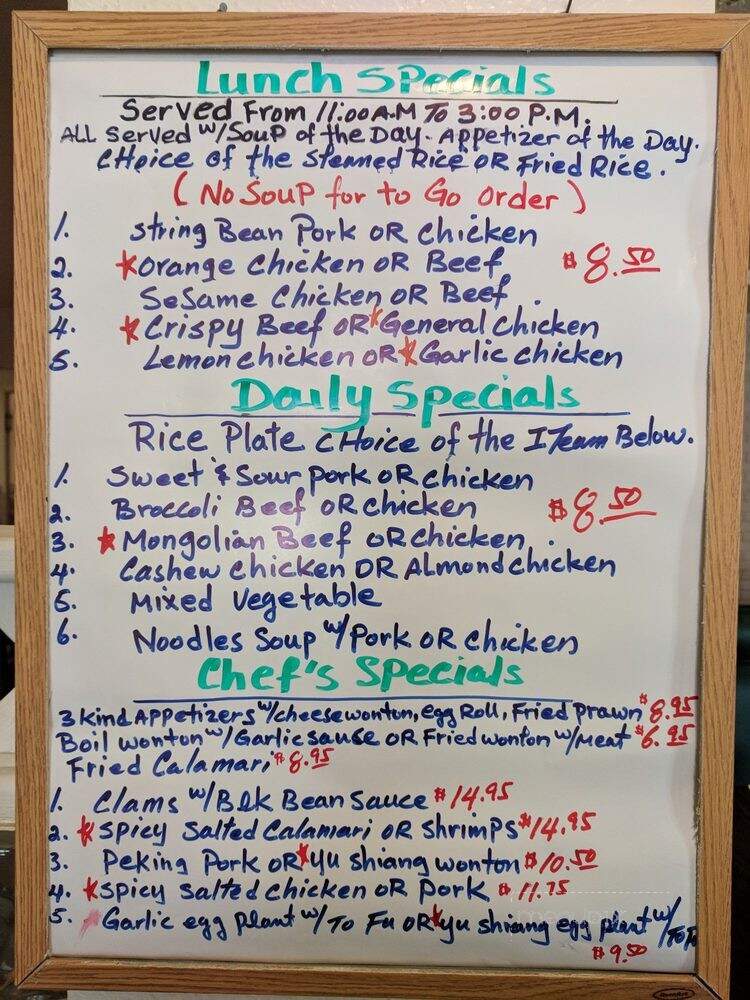 Lunch Specials
Served From 11:00 A.M To 3:00 P.M.
ALL Served w/Soup of the Day. Appetizer of the Day.
CHoice of the Steamed Rice OR Fried Rice.
(No Soup for to Go Order)
1. string Bean Pork OR Chicken
2. *Orange Chicken OR Beef $8.50
3. SeSame Chicken OR Beef.
4. *Crispy Beef OR *General Chicken
5. Lemon chicken OR *Garlic chicken
Daily Specials
Rice Plate CHoice of the ITeam Below.
1. Sweet & Sour pork OR chicken
2. Broccoli Beef OR chicken $8.50
3. *Mongolian Beef OR chicken.
4. Cashew chicken OR Almond chicken
5. Mixed Vegetable
6. Noodles Soup w/Pork OR chicken
Chef's Specials
3 kind Appetizers w/cheese wonton, egg Roll, Fried Prawn $8.95
Boil wonton w/Garlic sause OR Fried wonton w/Meat $6.95
Fried Calamari $8.95
1. Clams w/Blk Bean Sauce $14.95
2. *Spicy Salted Calamari OR Shrimps $14.95
3. Peking Pork OR *Yu shiang wonton $10.50
4. *Spicy Salted chicken OR Pork $11.75
5. *Garlic egg plant w/To Fu OR *yu shiang egg plant w/ToFu
$9.50